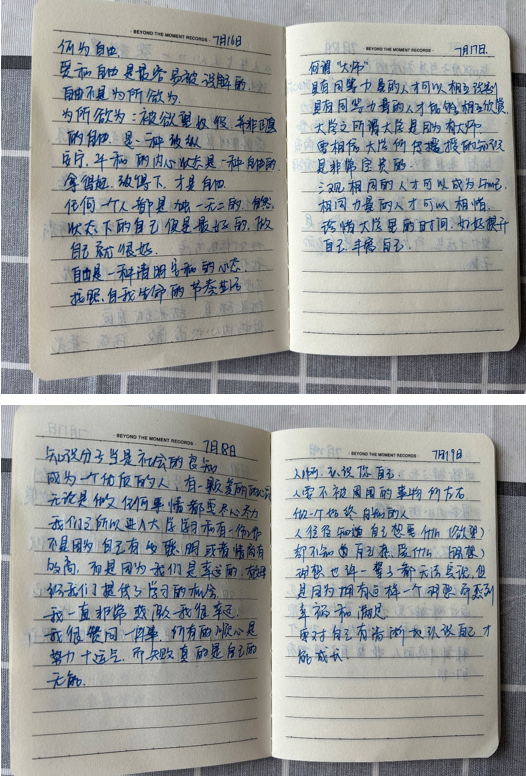 · BEYOND THE MOMENT RECORDS ·
7月16日
何为自由
爱和自由是最容易被误解的,
自由不是为所欲为.
为所欲为:被欲望奴役,并非真
的自由.是一种被纵
安宁,平和的内心状态是一种自由的
拿得起,放得下,才是自由
任何一个人都是独一无二的.自然
状态下的自己便是最好的,做
自己就很好.
自由是一种清明平和的心态
按照自我生命的节奏生活
· BEYOND THE MOMENT RECORDS ·
7月17日.
何谓“大师”
具有同等力量的人才可以相互识别
具有同等力量的人才能够相互欣赏
大学之所谓大学是因为有大师
要相信大学所传播的知识
是非常宝贵的
三观相同的人才可以成为知己,
相同力量的人才可以相惜
珍惜大学里的时间,好好提升
自己.丰富自己.
· BEYOND THE MOMENT RECORDS ·
7月18日
知识分子当是社会的良知
成为一个优质的人,有一颗美丽的心灵
无论是做任何事情都要尽心尽力
我们之所以进入大学学习和有一份工作
不是因为自己有多聪明或者情商有
多高,而是因为我们是幸运的,
给我们提供了学习的机会.
我一直非常感激我很幸运.
我很赞同一件事,所有的顺心是
努力+运气,而失败真的是自己的
无能.
· BEYOND THE MOMENT RECORDS ·
7月19日
人啊,认识你自己
人要不被周围的事物所左右
做一个始终自知的人
人往往知道自己想要什么(欲望)
却不知道自己(理想)
理想也许一辈子都无法兑现,但
是因为拥有这样一个理想而感到
幸福和满足
要对自己有清晰的认识自己才
能成长.